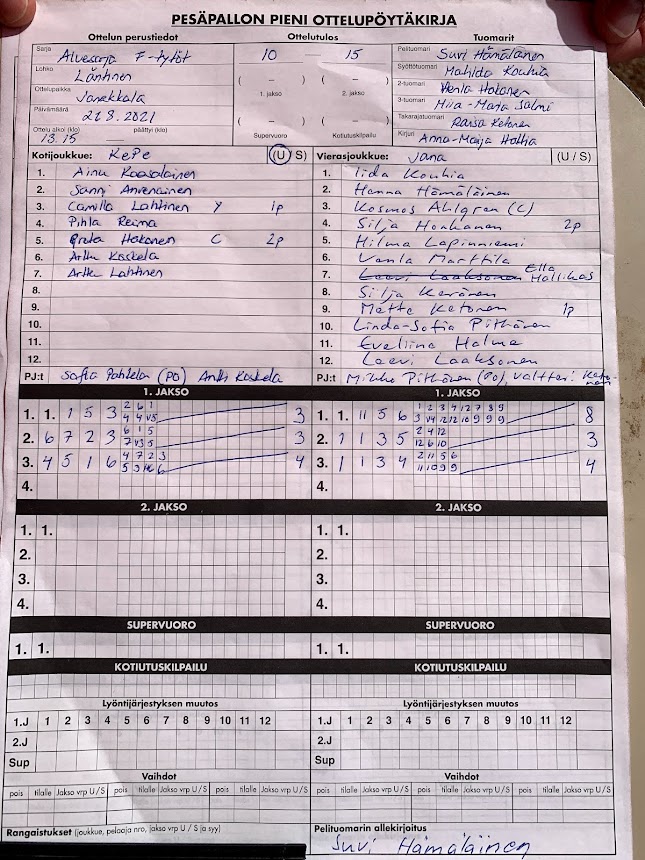 PESÄPALLON PIENI OTTELUPÖYTÄKIRJA
Ottelun perustiedot Ottelutulos Tuomarit
Sarja Aluesarja F-tytöt
Lohko Läntinen
Ottelupaikka Janakkala
Päivämäärä 21.8.2021
Ottelu alkoi (klo) 13.15 päättyi (klo)
10 — 15
( – ) ( – )
1. jakso 2. jakso
( – ) ( – )
Supervuoro Kotiutuskilpailu
Pelituomari Suvi Hämäläinen
Syöttötuomari Mahilda Kouhia
2-tuomari Venla Hakanen
3-tuomari Miia-Marja Salmi
Takarajatuomari Raisa Ketonen
Kirjuri Anna-Maija Holtta
Kotijoukkue: KePe (U / S)
1. Ainu Kaasalainen
2. Sanni
3. Camilla Lahtinen Y 1p
4. Pihla Reima
5. Greta Hakanen C 2p
6. Arttu Koskela
7. Arttu Lahtinen
8.
9.
10.
11.
12.
PJ:t Sofia (PO) Antti Koskela
Vierasjoukkue: Jana (U / S)
1. Iida Kouhia
2. Henna Hämäläinen
3. Kosmos Ahlgren (C)
4. Silja Honkanen 2p
5. Hilma Lapinniemi
6. Vanla Marttila
7. Leevi Laaksonen Ella Hallikas
8. Silja Keränen
9. Mette Ketonen 1p
10. Linda-Sofia Pitkänen
11. Eveliina Halme
12. Leevi Laaksonen
PJ:t Mikko Pitkänen (PO), Valtteri Ketonen
1. JAKSO 1. JAKSO
1. 1. 1 5 3 2 6 1 3
2. 6 7 2 3 6 1 5 3
3. 4 5 1 6 4 7 2 3 4
4.
1. 1. 11 5 6 1 2 3 4 12 7 8 9 8
3 14 12 12 10 9 9 9
2. 7 1 3 5 2 4 12 3
12 6 10
3. 1 1 3 4 2 11 5 6 4
11 10 9 9
4.
2. JAKSO 2. JAKSO
1. 1. 1. 1.
2. 2.
3. 3.
4. 4.
SUPERVUORO SUPERVUORO
1. 1. 1. 1.
KOTIUTUSKILPAILU KOTIUTUSKILPAILU
Lyöntijärjestyksen muutos Lyöntijärjestyksen muutos
1.J 1 2 3 4 5 6 7 8 9 10 11 12 1.J 1 2 3 4 5 6 7 8 9 10 11 12
2.J 2.J
Sup Sup
Vaihdot Vaihdot
pois tilalle Jakso vrp U / S pois tilalle Jakso vrp U / S pois tilalle Jakso vrp U / S pois tilalle Jakso vrp U / S
Rangaistukset (joukkue, pelaaja nro, jakso vrp U / S ja syy)
Pelituomarin allekirjoitus
Suvi Hämäläinen